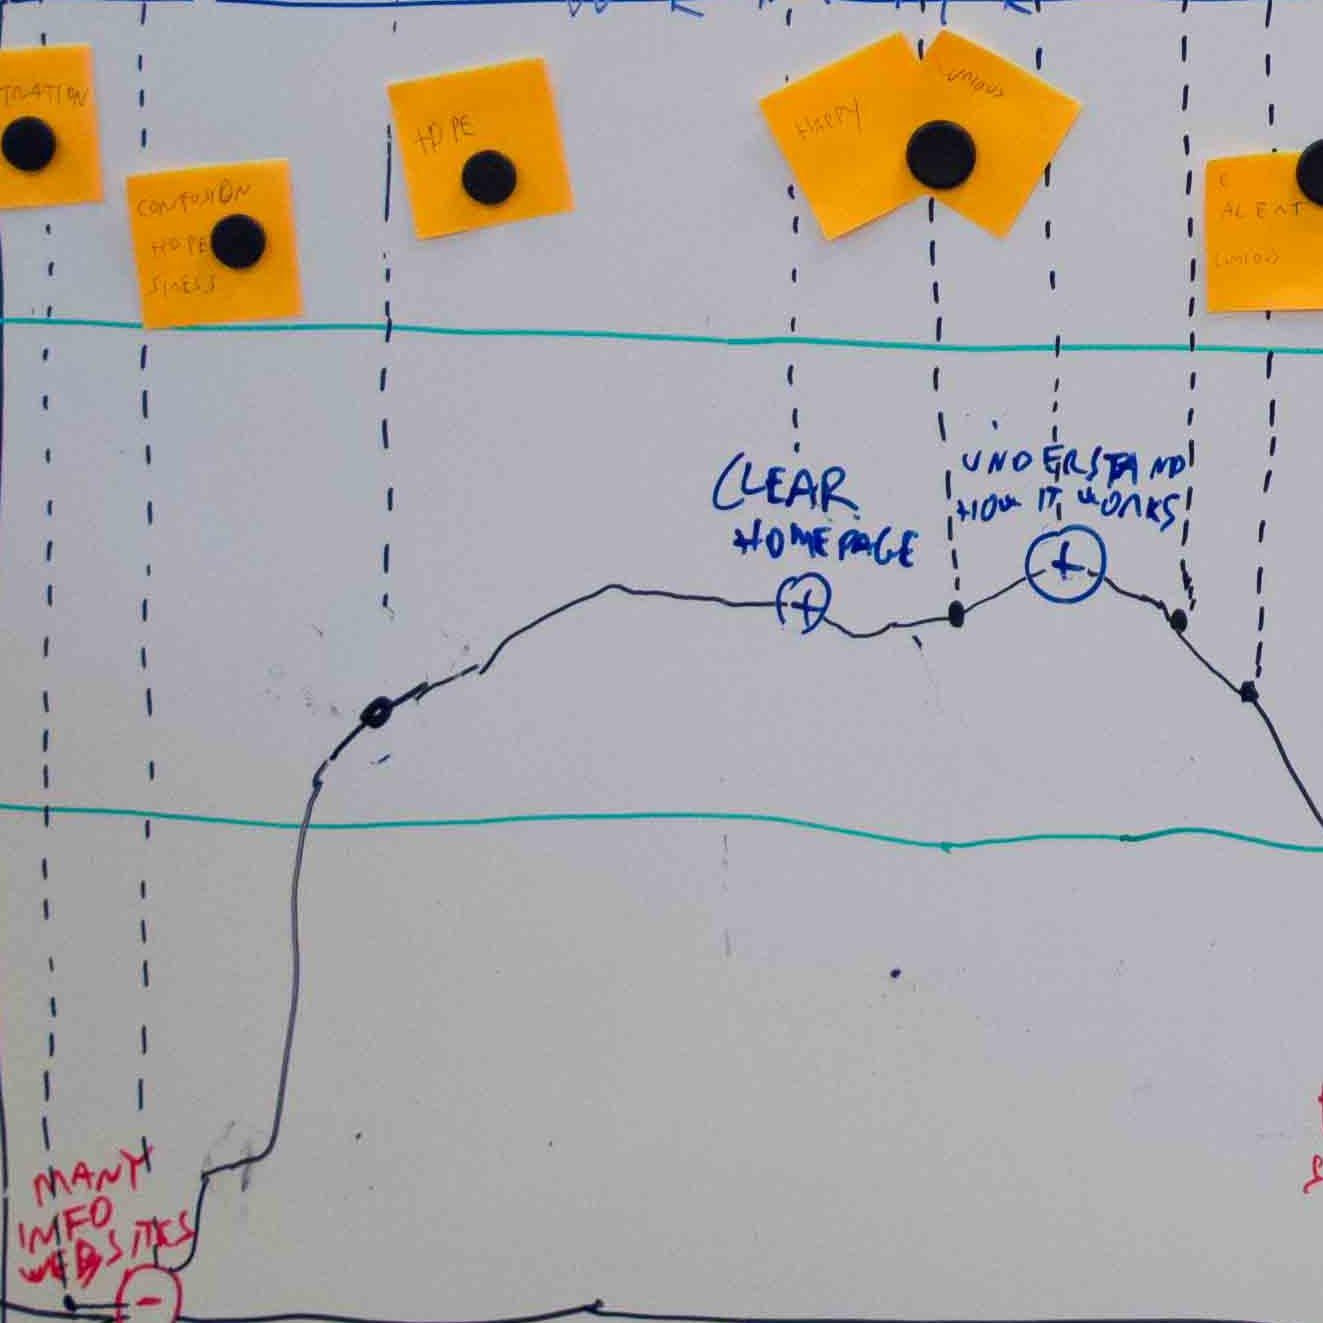 TRATION
CONFUSION
HOPE
STRESS
HOPE
HAPPY
CURIOUS
ALERT
CURIOUS
CLEAR
HOMEPAGE
UNDERSTAND
HOW IT WORKS
+
+
MANY
INFO
WEBSITES
-